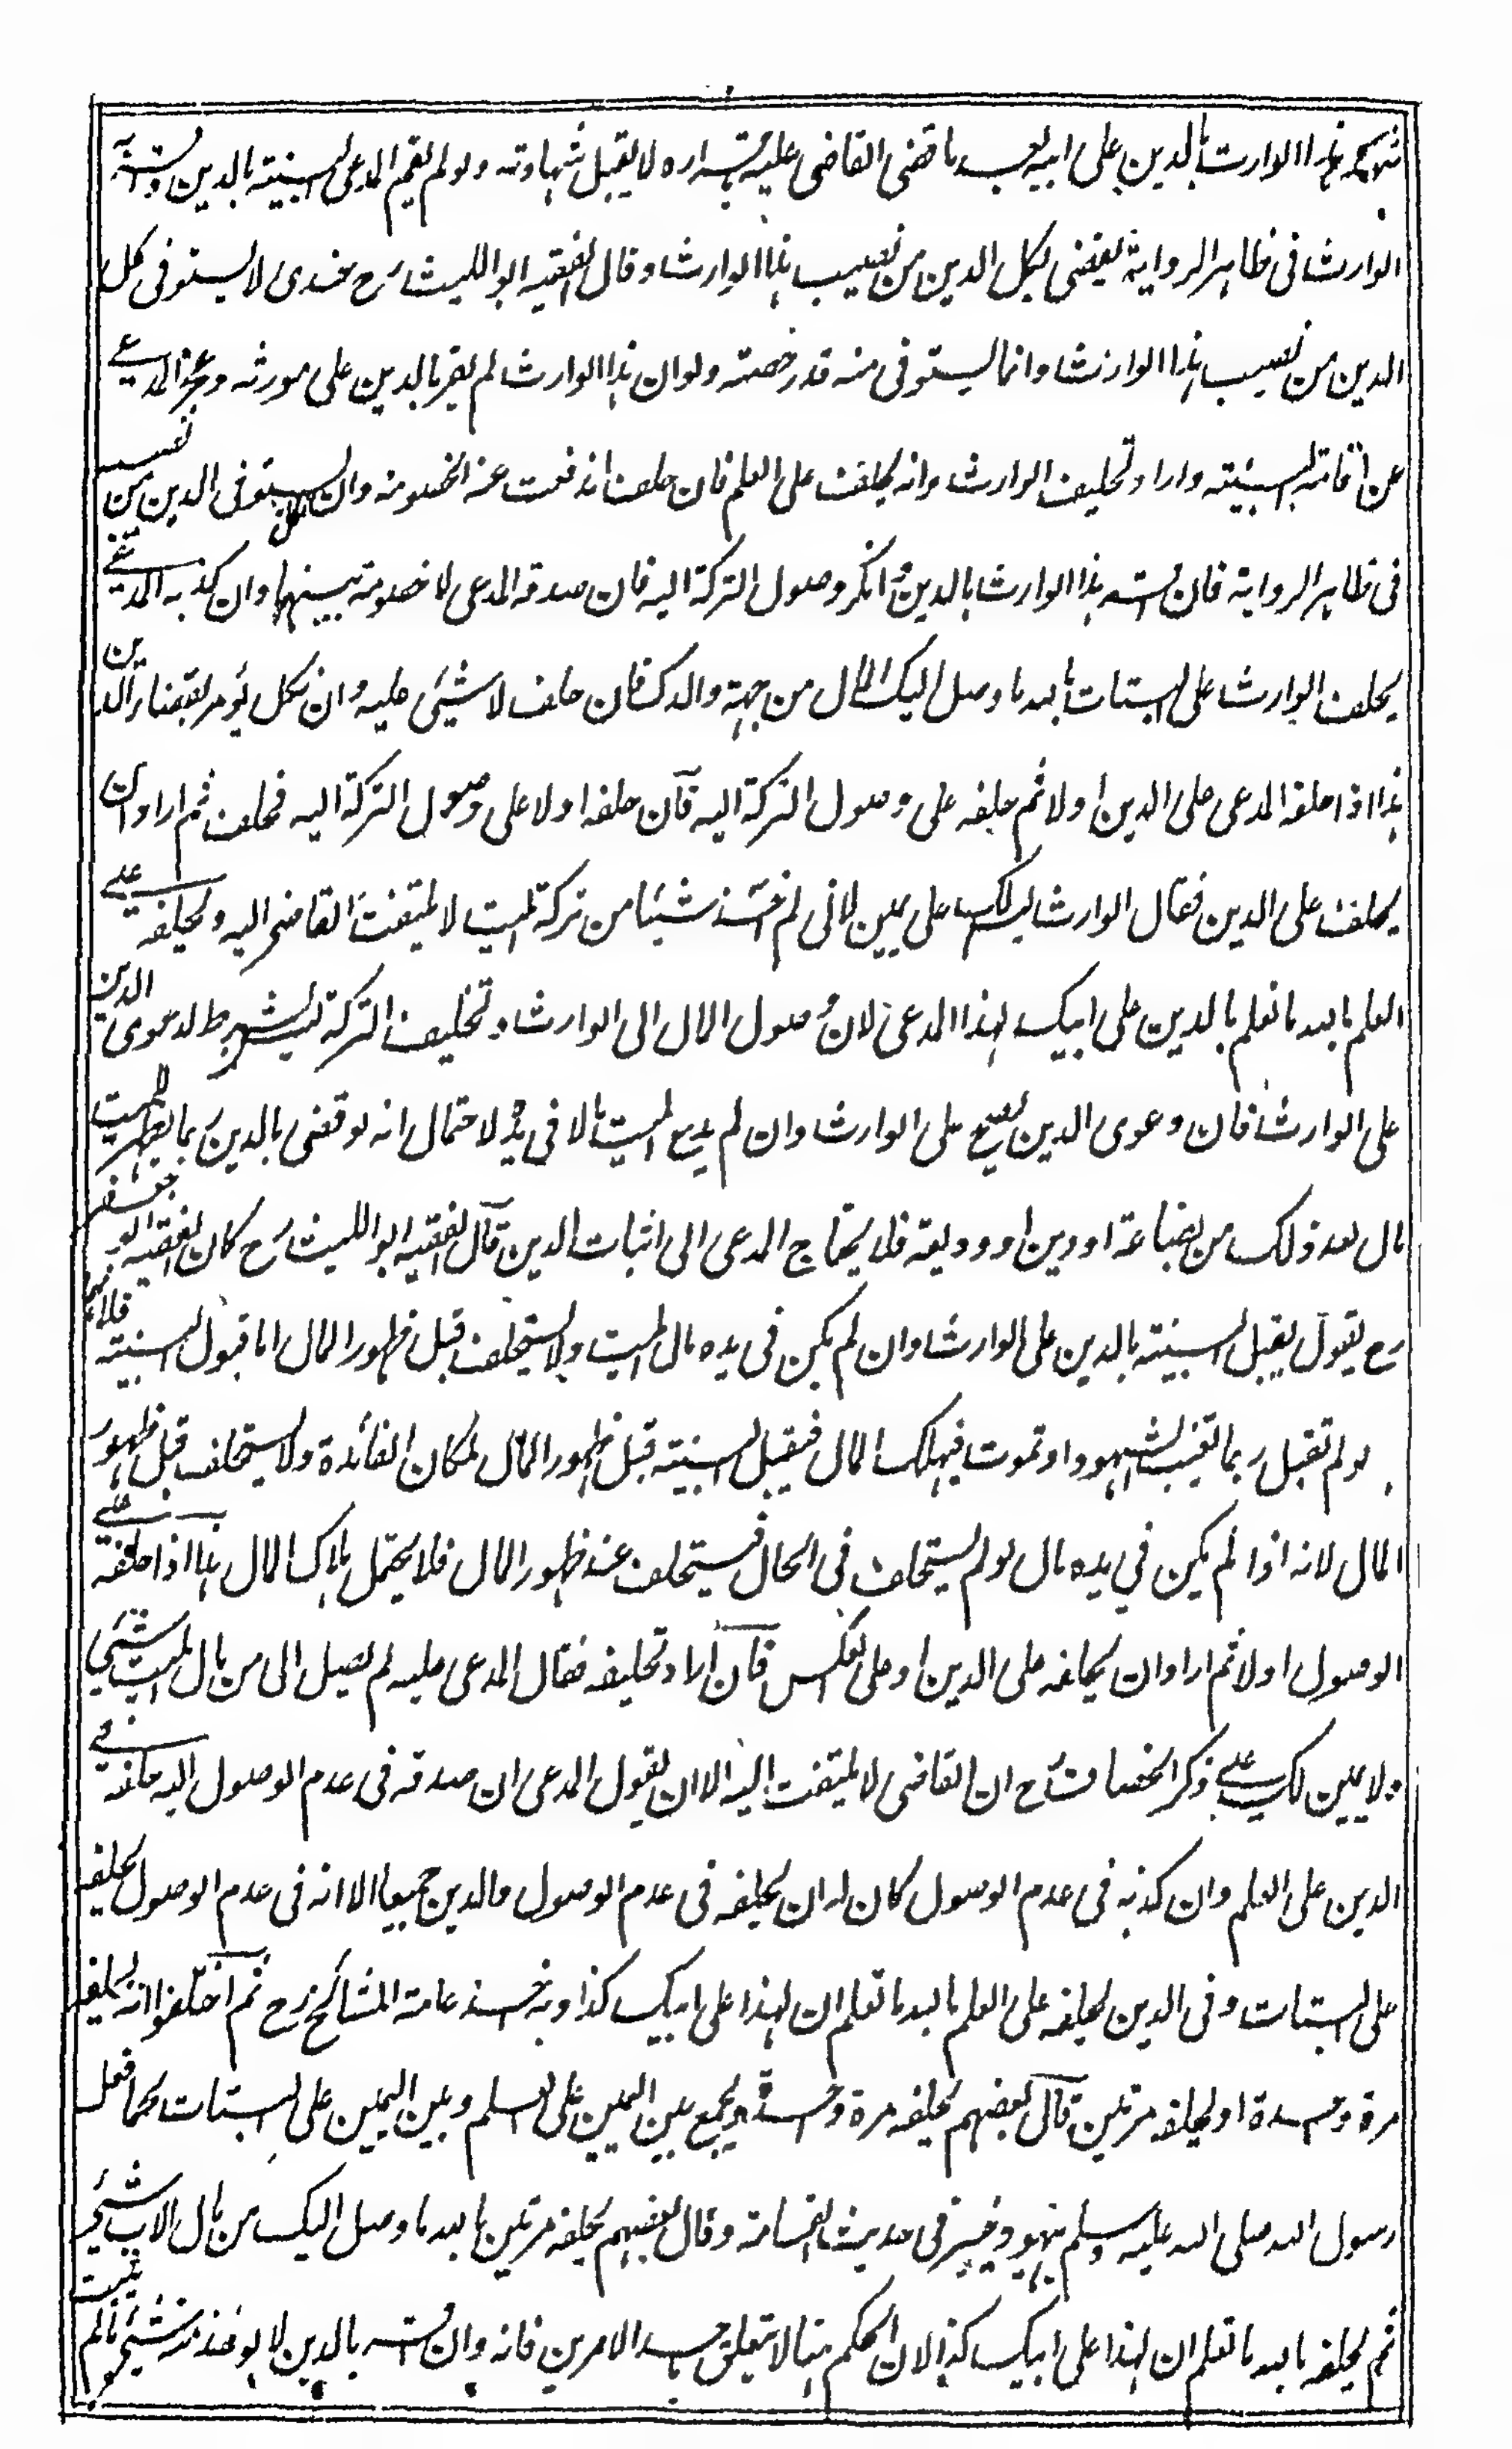 شهد هذا الوارث بالدين على ابيه بعد ما قضى القاضى عليه باقراره لا يقبل شهادته ولو لم يقم المدعى البينة بالدين واقر
الوارث فى ظاهر الرواية يقضى بكل الدين من نصيب هذا الوارث وقال الفقيه ابو الليث رح عندى لا يستوفى كل
الدين من نصيب هذا الوارث وانما يستوفى منه قدر حصته ولو ان هذا الوارث لم يقر بالدين على مورثه وعجز المدعى
عن اقامة البينة واراد تحليف الوارث فانه يحلف على العلم فان حلف اندفعت عنه الخصومة وان نكل يستوفى الدين من نصيبه
فى ظاهر الرواية فان اقر هذا الوارث بالدين وانكر وصول التركة اليه فان صدقه المدعى لا خصومة بينهما وان كذبه المدعى
يحلف الوارث على البتات بالله ما وصل اليك المال من جهة والدك فان حلف لا شيئ عليه وان نكل يؤمر بقضاء الدين
هذا اذا حلفه المدعى على الدين اولا ثم حلفه على وصول التركة اليه فان حلفه اولا على وصول التركة اليه فحلف ثم اراد ان
يحلف على الدين فقال الوارث ليس لك على يمين لانى لم آخذ شيئا من تركة الميت لا يلتفت القاضى اليه ويحلفه على
العلم بالله ما تعلم بالدين على ابيك لهذا المدعى لان وصول المال الى الوارث وتخليف التركة ليس بشرط لدعوى الدين
على الوارث فان دعوى الدين يصح على الوارث وان لم يدع الميت مالا فى يده لاحتمال انه لو قضى بالدين ربما يظهر للميت
مال بعد ذلك من بضاعة او دين او وديعة فلا يحتاج المدعى الى اثبات الدين قال الفقيه ابو الليث رح كان الفقيه ابو جعفر
رح يقول يقبل البينة بالدين على الوارث وان لم يكن فى يده مال الميت ولا يستحلف قبل ظهور المال اما قبول البينة فلانها
لو لم تقبل ربما تغيب الشهود او تموت فيهلك المال فيقبل البينة قبل ظهور المال لمكان الفائدة ولا يستحلف قبل ظهور
المال لانه اذا لم يكن في يده مال لو لم يستحلف فى الحال فيستحلف عند ظهور المال فلا يحتمل هلاك المال هذا اذا حلفه على
الوصول اولا ثم اراد ان يحلفه على الدين او على العكس فان اراد تحليفه فقال المدعى عليه لم يصل الى من مال الميت شيئ
ولا يمين لك علي ذكر الخصاف رح ان القاضى لا يلتفت اليه الا ان يقول المدعى ان صدقه فى عدم الوصول اليه حلفه فى
الدين على العلم وان كذبه فى عدم الوصول كان له ان يحلفه فى عدم الوصول والدين جميعا الا انه فى عدم الوصول يحلفه
على البتات وفى الدين يحلفه على العلم بالله ما تعلم ان لهذا على ابيك كذا وبه اخذ عامة المشائخ رح ثم اختلفوا انه يحلفه
مرة واحدة او يحلفه مرتين قال بعضهم يحلفه مرة واحدة ويجمع بين اليمين على العلم وبين اليمين على البتات كما فعل
رسول الله صلى الله عليه وسلم بيهود خيبر فى حديث القسامة وقال بعضهم يحلفه مرتين بالله ما وصل اليك من مال الاب شيئ
ثم يحلفه بالله ما تعلم ان لهذا على ابيك كذا لان الحكم هنا لا يتعلق باحد الامرين فانه وان اقر بالدين لا يؤخذ منه شيئ مالم يثبت